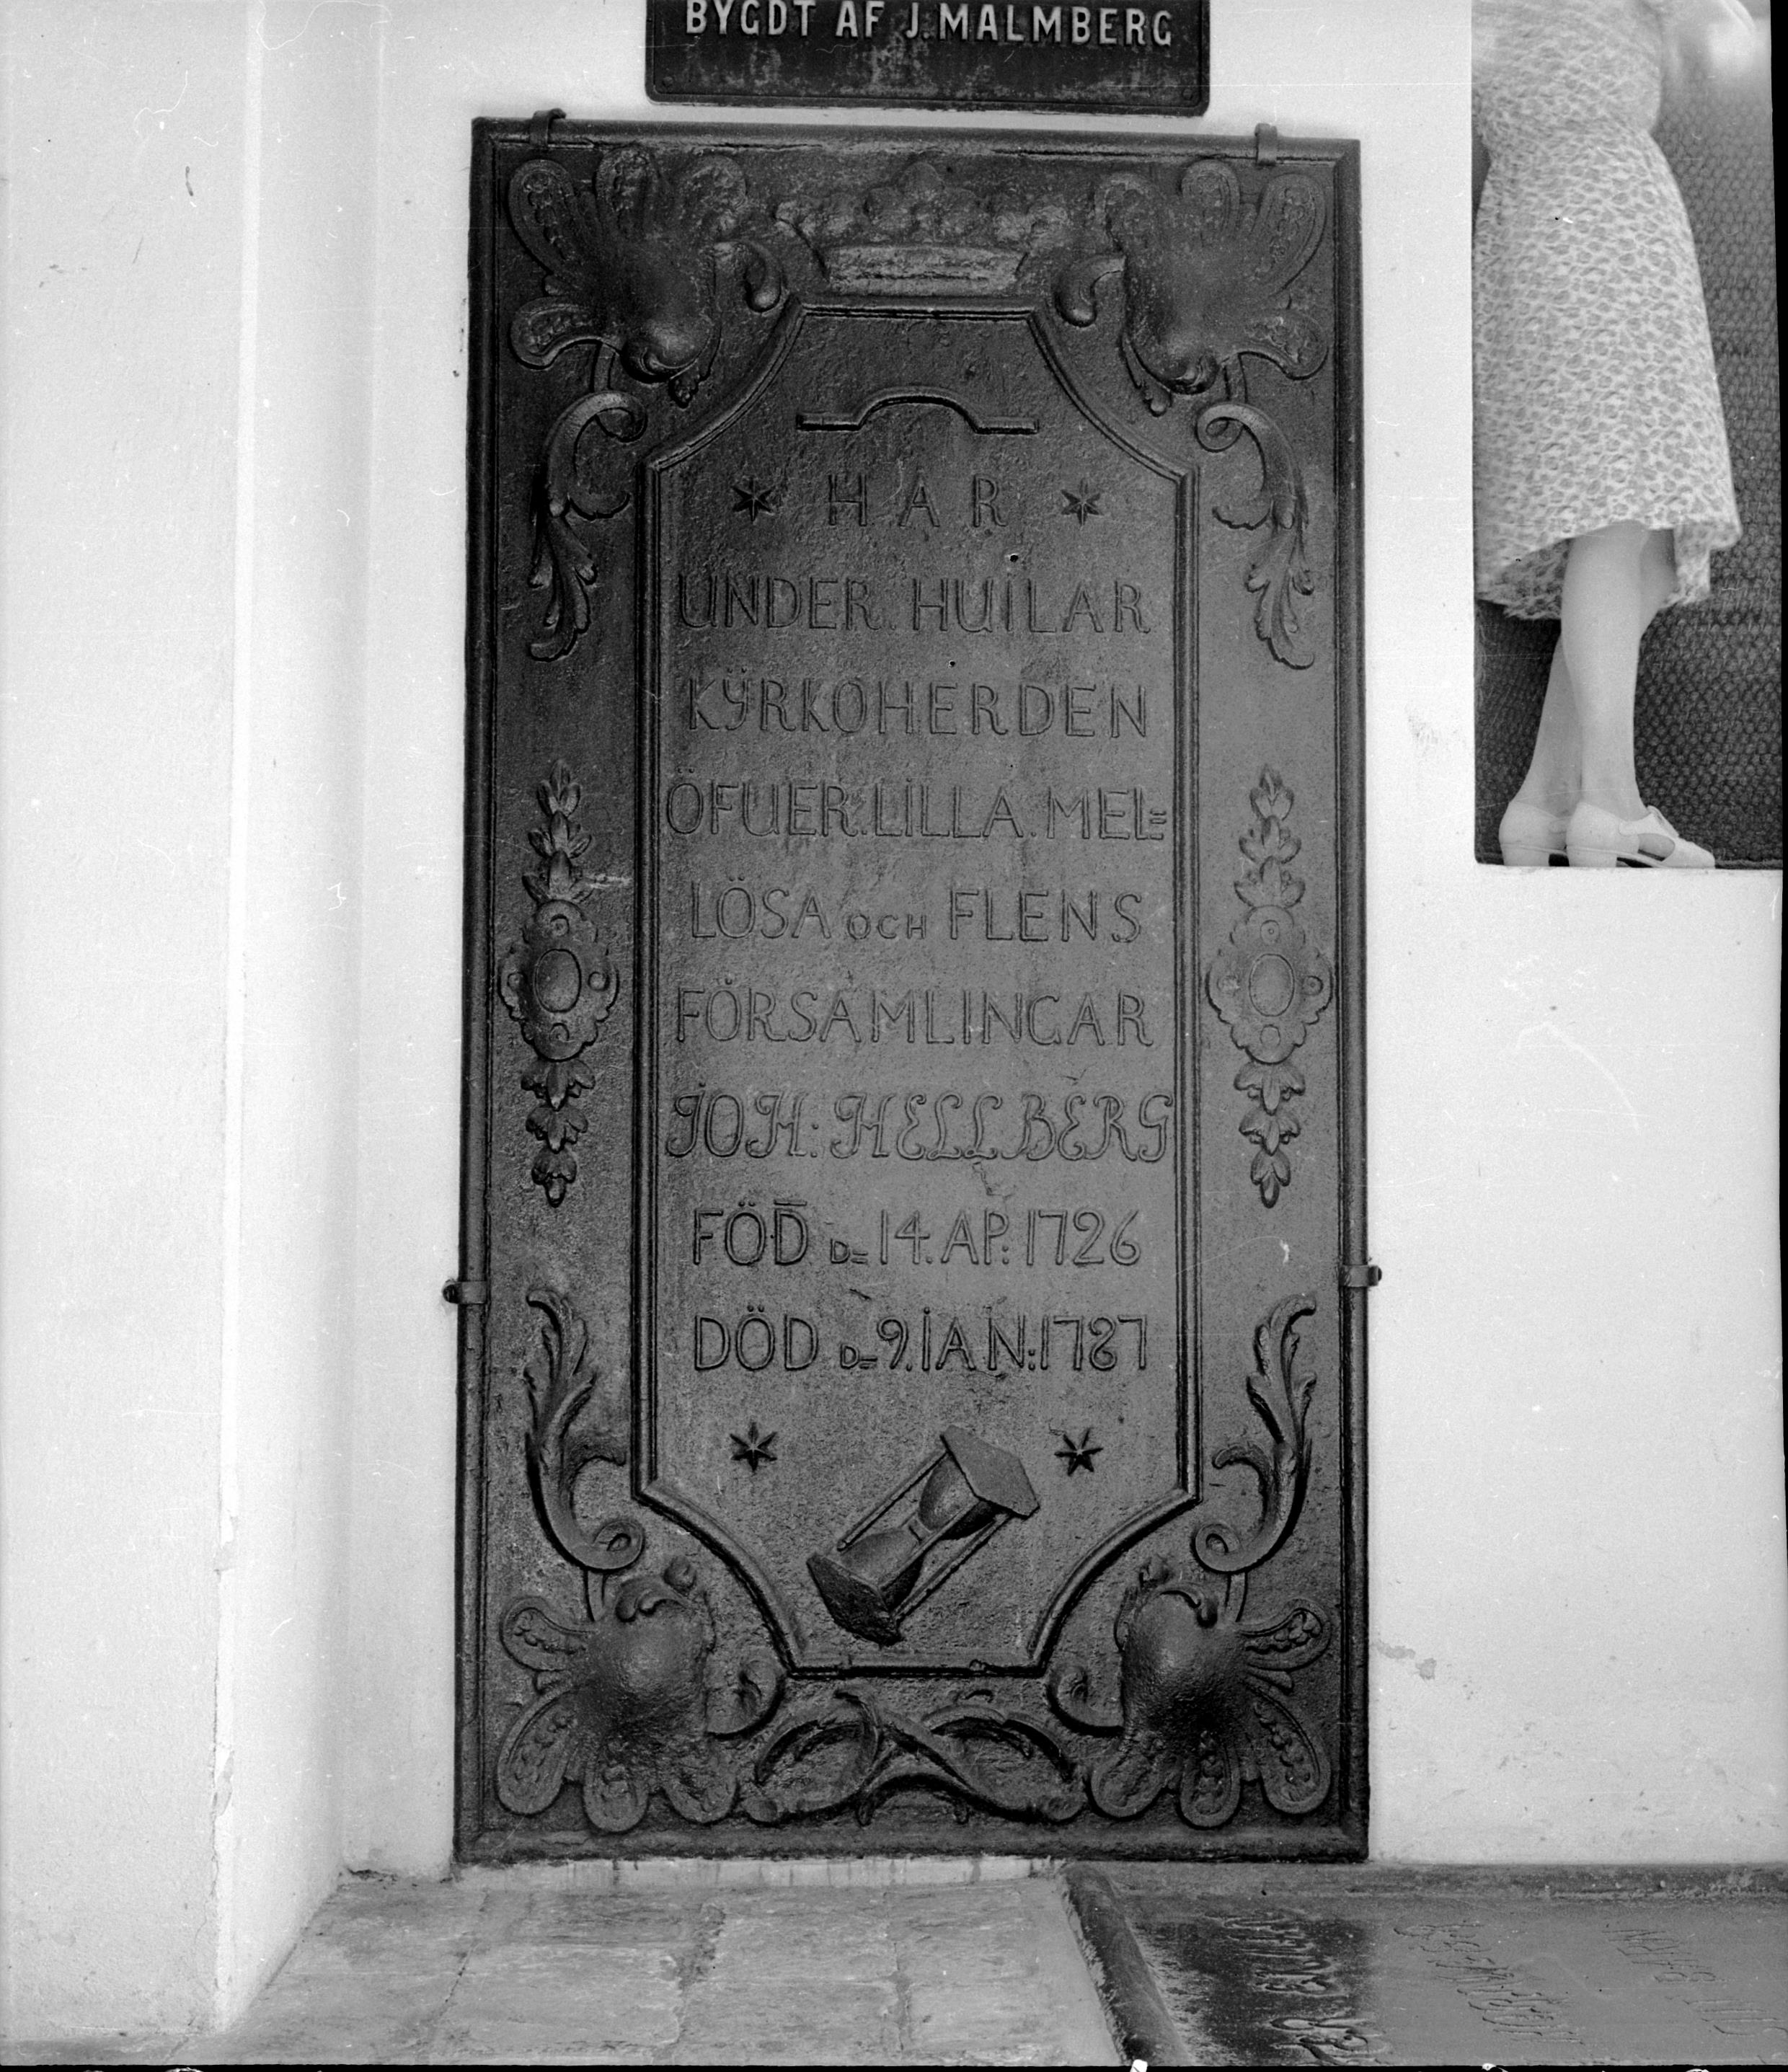 BYGDT AF J. MALMBERG
HAR
UNDER. HUILAR
KŸRKOHERDEN
ÖFUER. LILLA. MEL=
LÖSA OCH FLENS
FÖRSAMLINGAR
JOH: HELLBERG
FÖD D= 14. AP: 1726
DÖD D= 9. IAN: 1787